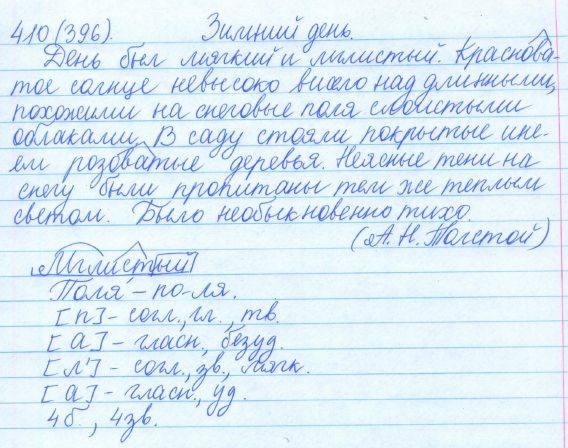 410 (396). Зимний день.
День был мягкий и мглистый. Краснова-
тое солнце невысоко висело над длинными,
похожими на снеговые поля слоистыми
облаками. В саду стояли покрытые ине-
ем розоватые деревья. Неясные тени на
снегу были пропитаны тем же теплым
светом. Было необыкновенно тихо.
(А. Н. Толстой)
Мглистый
Поля – по-ля.
[п] – согл., гл., тв.
[а] – гласн., безуд.
[л'] – согл., зв., мягк.
[а] – гласн., уд.
4 б., 4 зв.